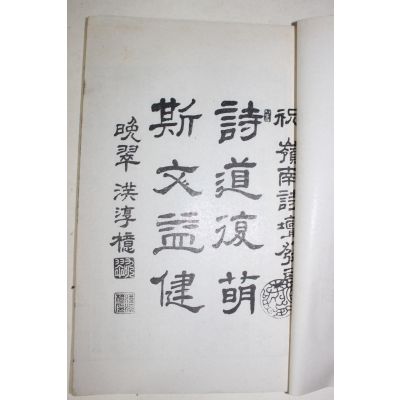 祝嶺南詩壇發展
詩道復萌
斯文益健
晚翠 洪淳檍